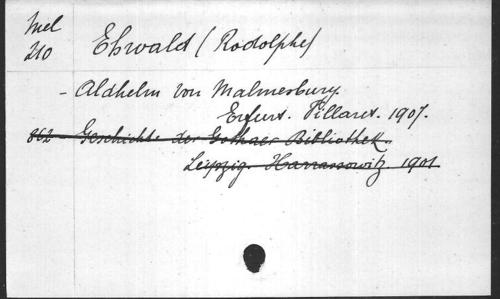 Mel
210
Ehwald (Rodolphe)
- Aldhelm von Malmesbury.
Erfurt. Villaret. 1907.
862 - Geschichte der Gothaer Bibliothek.
Leipzig. Harrassowitz 1901